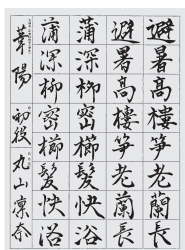 避暑高樓笋老蘭長
避暑高樓笋老蘭長
蒲深柳密櫛髪快浴
蒲深柳密櫛髪快浴
葦陽 初段 丸山凛奈